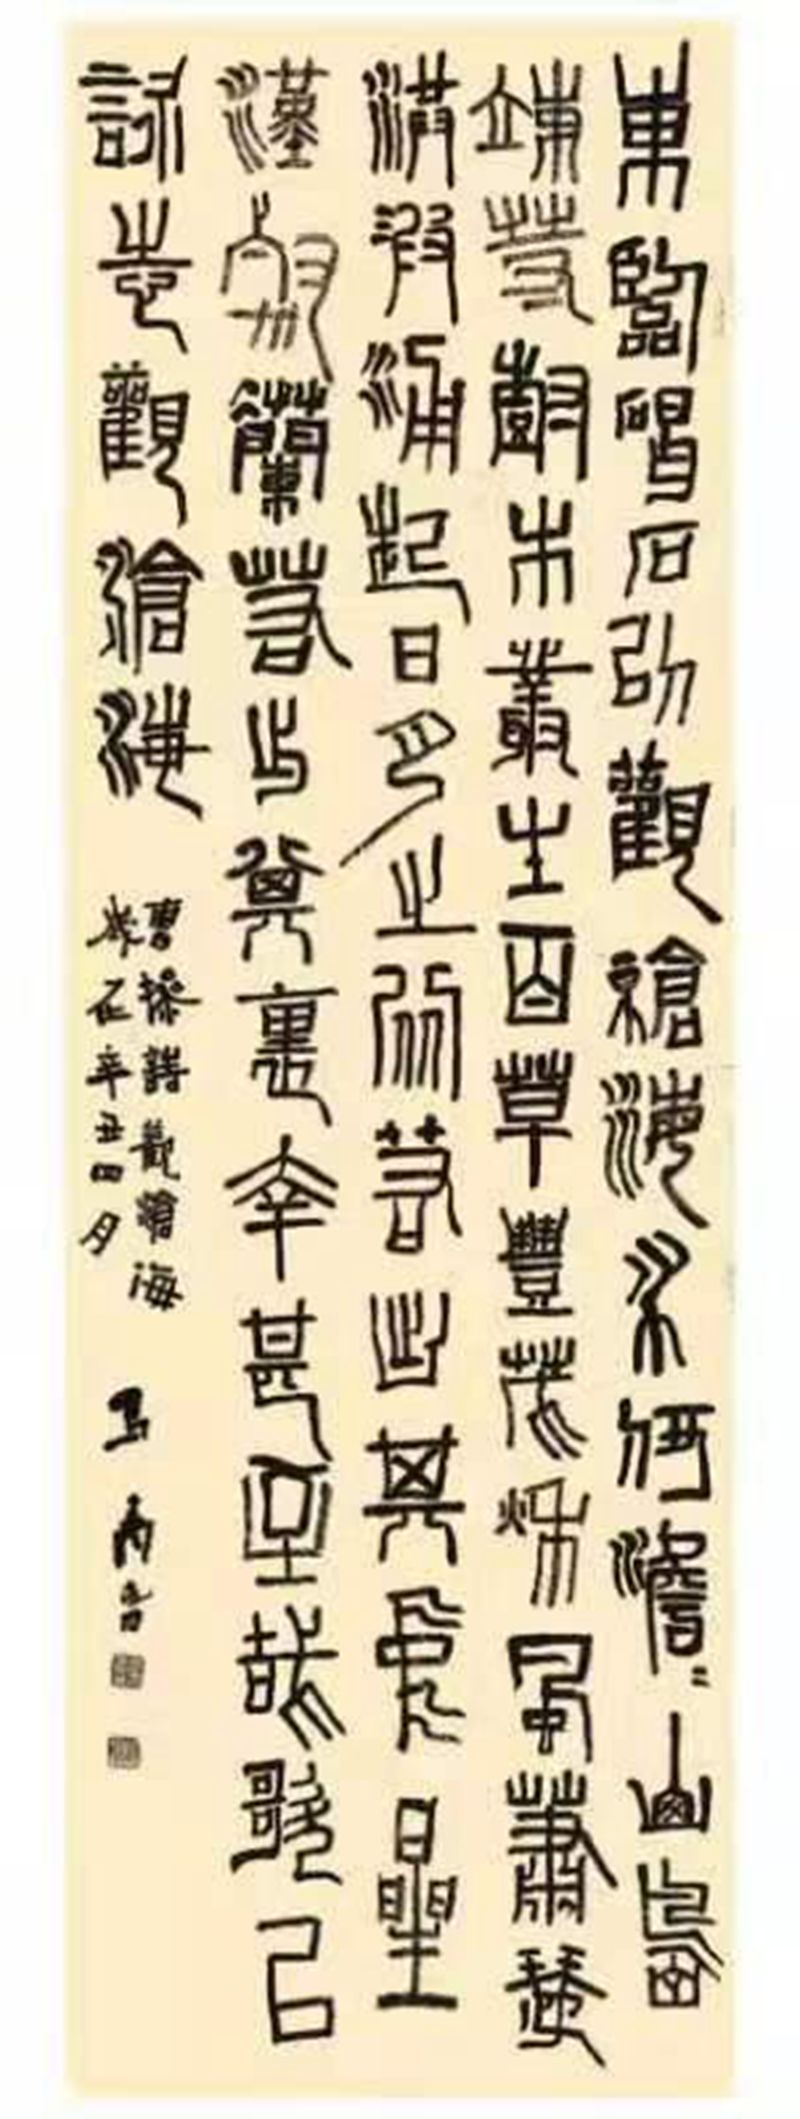 東臨碣石以觀滄海水何澹〻山島
竦峙樹木叢生百草豐茂秋風蕭瑟
洪波涌起日月之行若出其中星
漢燦爛若出其裏幸甚至哉歌以
詠志觀滄海
曹操詩觀滄海
歲在辛丑四月
馬